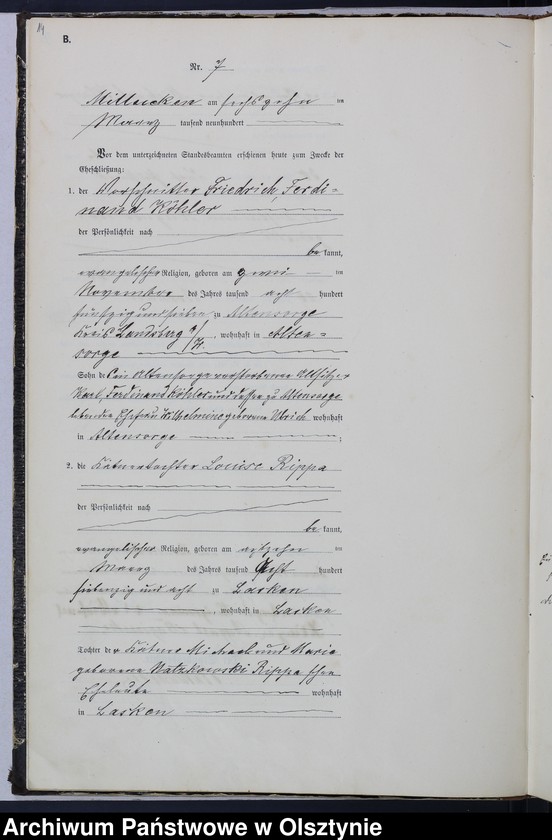 14
B.
Nr. 7
Milluken am sechszehn ten
Maerz tausend neunhundert
Vor dem unterzeichneten Standesbeamten erschienen heute zum Zwecke der
Eheschließung:
1. der Vorschnitter Friedrich, Ferdi=
nand Köhler
der Persönlichkeit nach
be kannt,
evangelischer Religion, geboren am zwei ten
November des Jahres tausend acht hundert
fünfzig und sieben zu Altensorge
Kreis Landsberg a/W., wohnhaft in Alten=
sorge
Sohn des in Altensorge verstorbenen Altsitzer
Karl, Ferdinand Köhler und dessen zu Altensorge
lebenden Ehefrau Wilhelmine geborene Ulrich wohnhaft
in Altensorge ;
2. die Kätnertochter Louise Rippa
der Persönlichkeit nach
be kannt,
evangelischer Religion, geboren am achtzehn ten
Maerz des Jahres tausend acht hundert
siebenzig und acht zu Lasken
, wohnhaft in Lasken
Tochter der Kätner Michael und Marie
geborene Natzkowski Rippa'schen
Eheleute wohnhaft
in Lasken
Archiwum Państwowe w Olsztynie